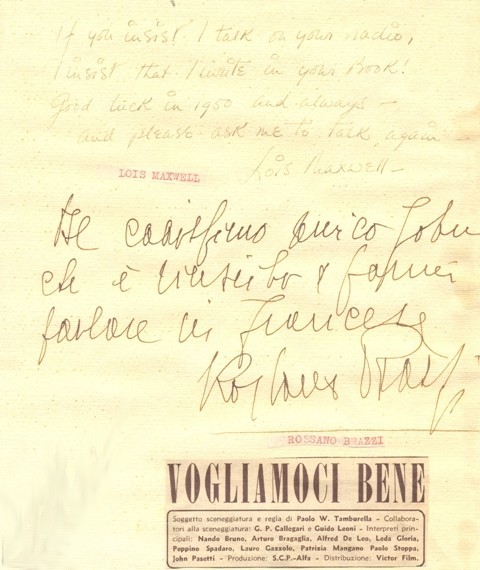 If you insist I talk on your radio,
I insist that I write in your Book!
Good luck in 1950 and always —
and please ask me to talk again —
Lois Maxwell —
LOIS MAXWELL
Al carissimo amico John
che è riuscito a farmi
parlare in Francese
Rossano Brazzi
ROSSANO BRAZZI
VOGLIAMOCI BENE
Soggetto sceneggiatura e regia di Paolo W. Tamburella – Collabora-
tori alla sceneggiatura: G. P. Callegari e Guido Leoni – Interpreti prin-
cipali: Nando Bruno, Arturo Bragaglia, Alfred De Leo, Leda Gloria,
Peppino Spadaro, Lauro Gazzolo, Patrizia Mangano Paolo Stoppa,
John Pasetti – Produzione: S.C.P.-Alfa – Distribuzione: Victor Film.